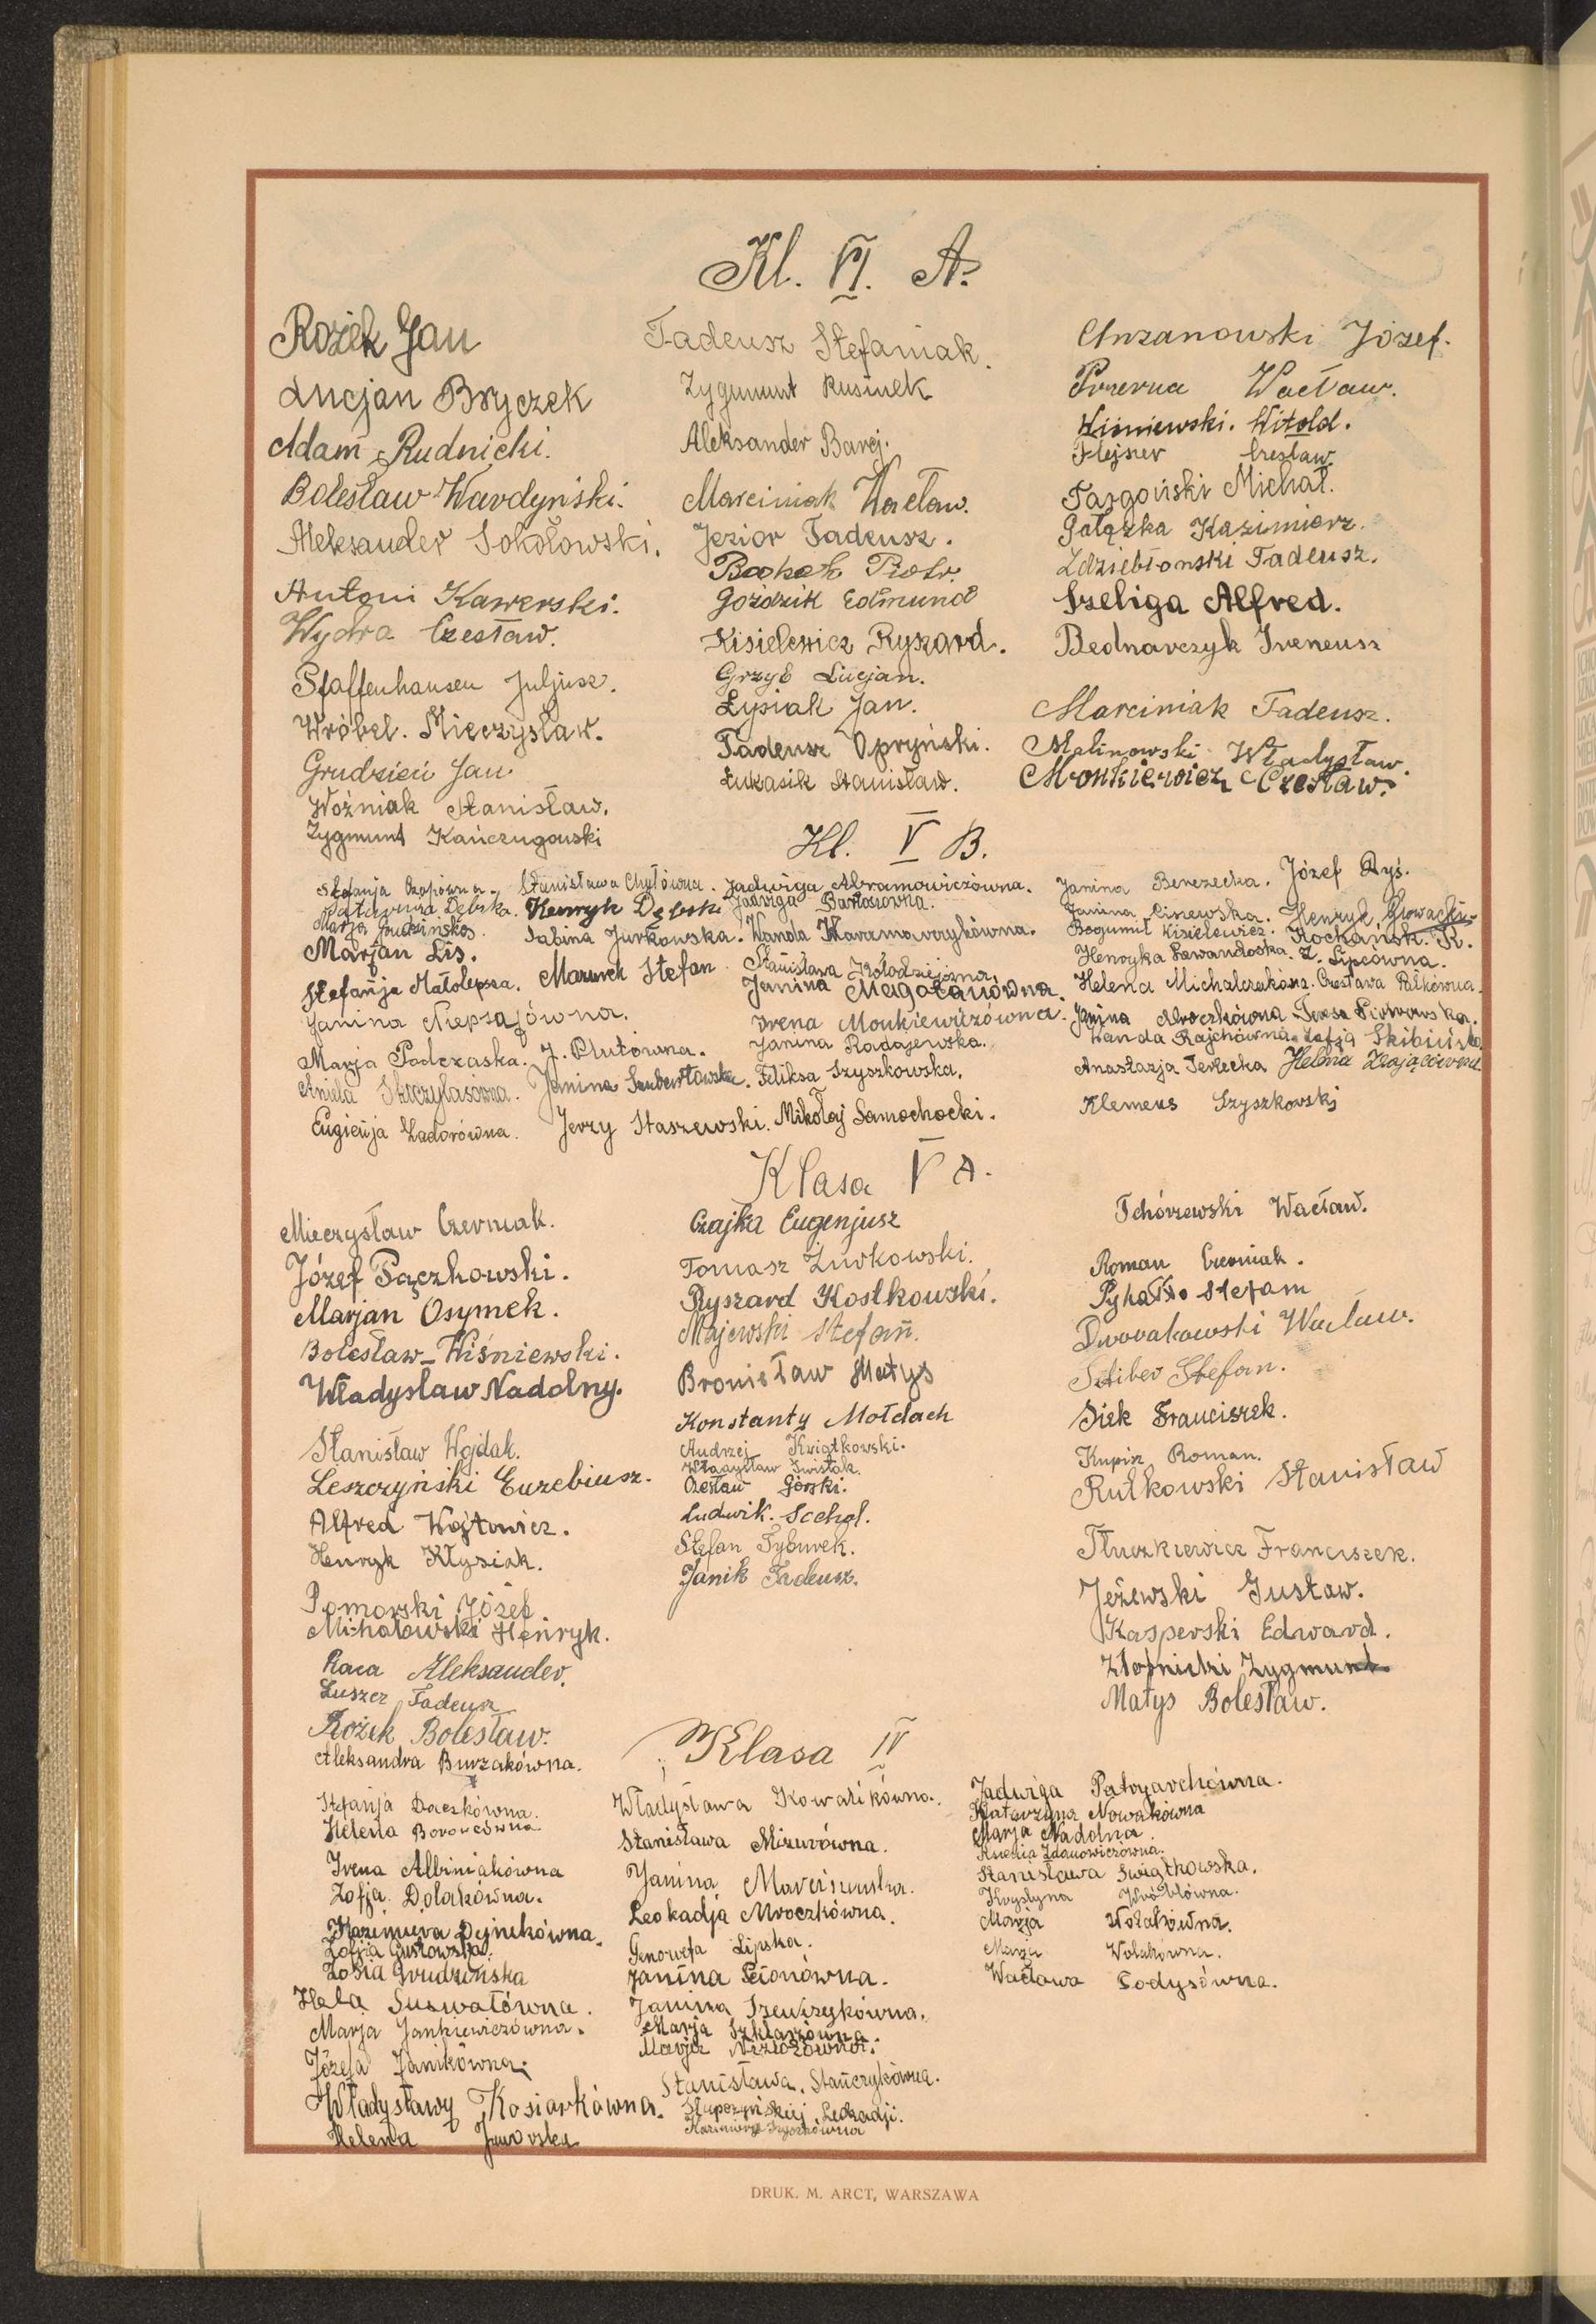 Kl. VI. A.
Rożek Jan
Lucjan Bryczek
Adam Rudnicki.
Bolesław Wardyński.
Aleksander Sokołowski.
Antoni Kawerski.
Wydra Czesław.
Pfaffenhausen Juljusz.
Wróbel. Mieczysław.
Grudzień Jan
Woźniak Stanisław.
Zygmunt Kańczugowski
Tadeusz Stefaniak.
Zygmunt Rusinek
Aleksander Barej.
Marciniak Wacław.
Jezior Tadeusz.
Piotr.
Goździk Edmund
Kisielewicz Ryszard.
Grzyb Lucjan.
Łysiak Jan.
Tadeusz Opryński.
Łukasik Stanisław.
Chrzanowski Józef.
Przerwa Wacław.
Wiśniewski. Witold.
Flejszer Czesław.
Targoński Michał.
Gałązka Kazimierz.
Zdziebłowski Tadeusz.
Szeliga Alfred.
Bednarczyk Ireneusz
Marciniak Tadeusz.
Malinowski Władysław.
Monkiewicz Czesław.
Kl. V B.
Stefanja Czapówna.
Katarzyna Dębska.
Marja Grudzińska.
Marjan Lis.
Stefanja Małolepsza.
Janina Niepsajówna.
Marja Podczaska.
Aniela Skoczylasówna.
Eugienja Zadorówna.
Stanisława Chyłówna.
Henryk Dębski
Sabina Jurkowska.
Mazurek Stefan
J. Plutówna.
Janina Szubertowska.
Jerzy Staszewski.
Jadwiga Abramowiczówna.
Jadwiga Bartosówna.
Wanda Karamowrykówna.
Stanisława Kołodziejczna,
Janina Magotanówna.
Irena Monkiewiczówna.
Janina Radajewska.
Feliksa Szyszkowska.
Mikołaj Samochocki.
Janina Berezecka. Józef Ryś.
Janina Linewska. Henryk Głowacki.
Bogumił Kisielewicz. Kochańsk. R.
Henryka Lewandoska. Z. Lipcówna.
Helena Michalczakówna. Czesława Pálkówna.
Janina Mroczkówna Teresa Piotrowska.
Wanda Rajchówna. Zofja Skibińska
Anastazja Terlecka Helena Zającówna
Klemens Szyszkowski
Klasa V A.
Mieczysław Czerniak.
Józef Pączkowski.
Marjan Osymek.
Bolesław Wiśniewski.
Władysław Nadolny.
Stanisław Wojdal.
Leszczyński Euzebiusz.
Alfred Wójtowicz.
Henryk Kłysiak.
Pomorski Józef
Michałowski Henryk.
Raca Aleksander.
Luszer Tadeusz
Rożek Bolesław.
Czajka Eugenjusz
Tomasz Żurkowski.
Ryszard Kostkowski.
Majewski Stefan.
Bronisław Matys
Konstanty Mołdach
Andrzej Kwiatkowski.
Władysław Świstak.
Czesław Górski.
Ludwik. Sochal.
Stefan Tyburek.
Janik Tadeusz.
Tchórzewski Wacław.
Roman Czerniak.
Pyhatko Stefan
Dworakowski Wacław.
Stiber Stefan.
Siek Franciszek.
Kupisz Roman.
Rutkowski Stanisław
Tłuczkiewicz Franciszek.
Jeżewski Gustaw.
Kasperski Edward.
Złotnicki Zygmunt.
Matys Bolesław.
Klasa IV
Aleksandra Burzakówna.
Stefanja Daczkówna.
Helena Borowcówna.
Irena Albiniakówna
Zofja. Dolakówna.
Kazimiera Dejnekówna.
Zofja Gustowska.
Zofia Grudzińska
Hela Suswałówna.
Marja Jankiewiczówna.
Józefa Janikówna.
Władysławy Kosiarkówna.
Helena Jaworska
Władysława Kowalikówna.
Stanisława Mizurówna.
Janina Marciniwska.
Leokadja Mroczkówna.
Genowefa Lipska.
Janina Pionówna.
Janina Szewczykówna.
Marja Szklarzówna.
Marja
Stanisława. Stańczykówna.
Słupczyńskiej Leokadji.
Kazimiera
Jadwiga Patryarchówna.
Katarzyna Nowakówna
Marja Nadolna.
Ksenia Zdanowiczówna.
Stanisława Świątkowska.
Krystyna Wróblówna.
Marja Wolakówna.
Marja Wolakówna.
Wacława Łodysówna.
DRUK. M. ARCT, WARSZAWA